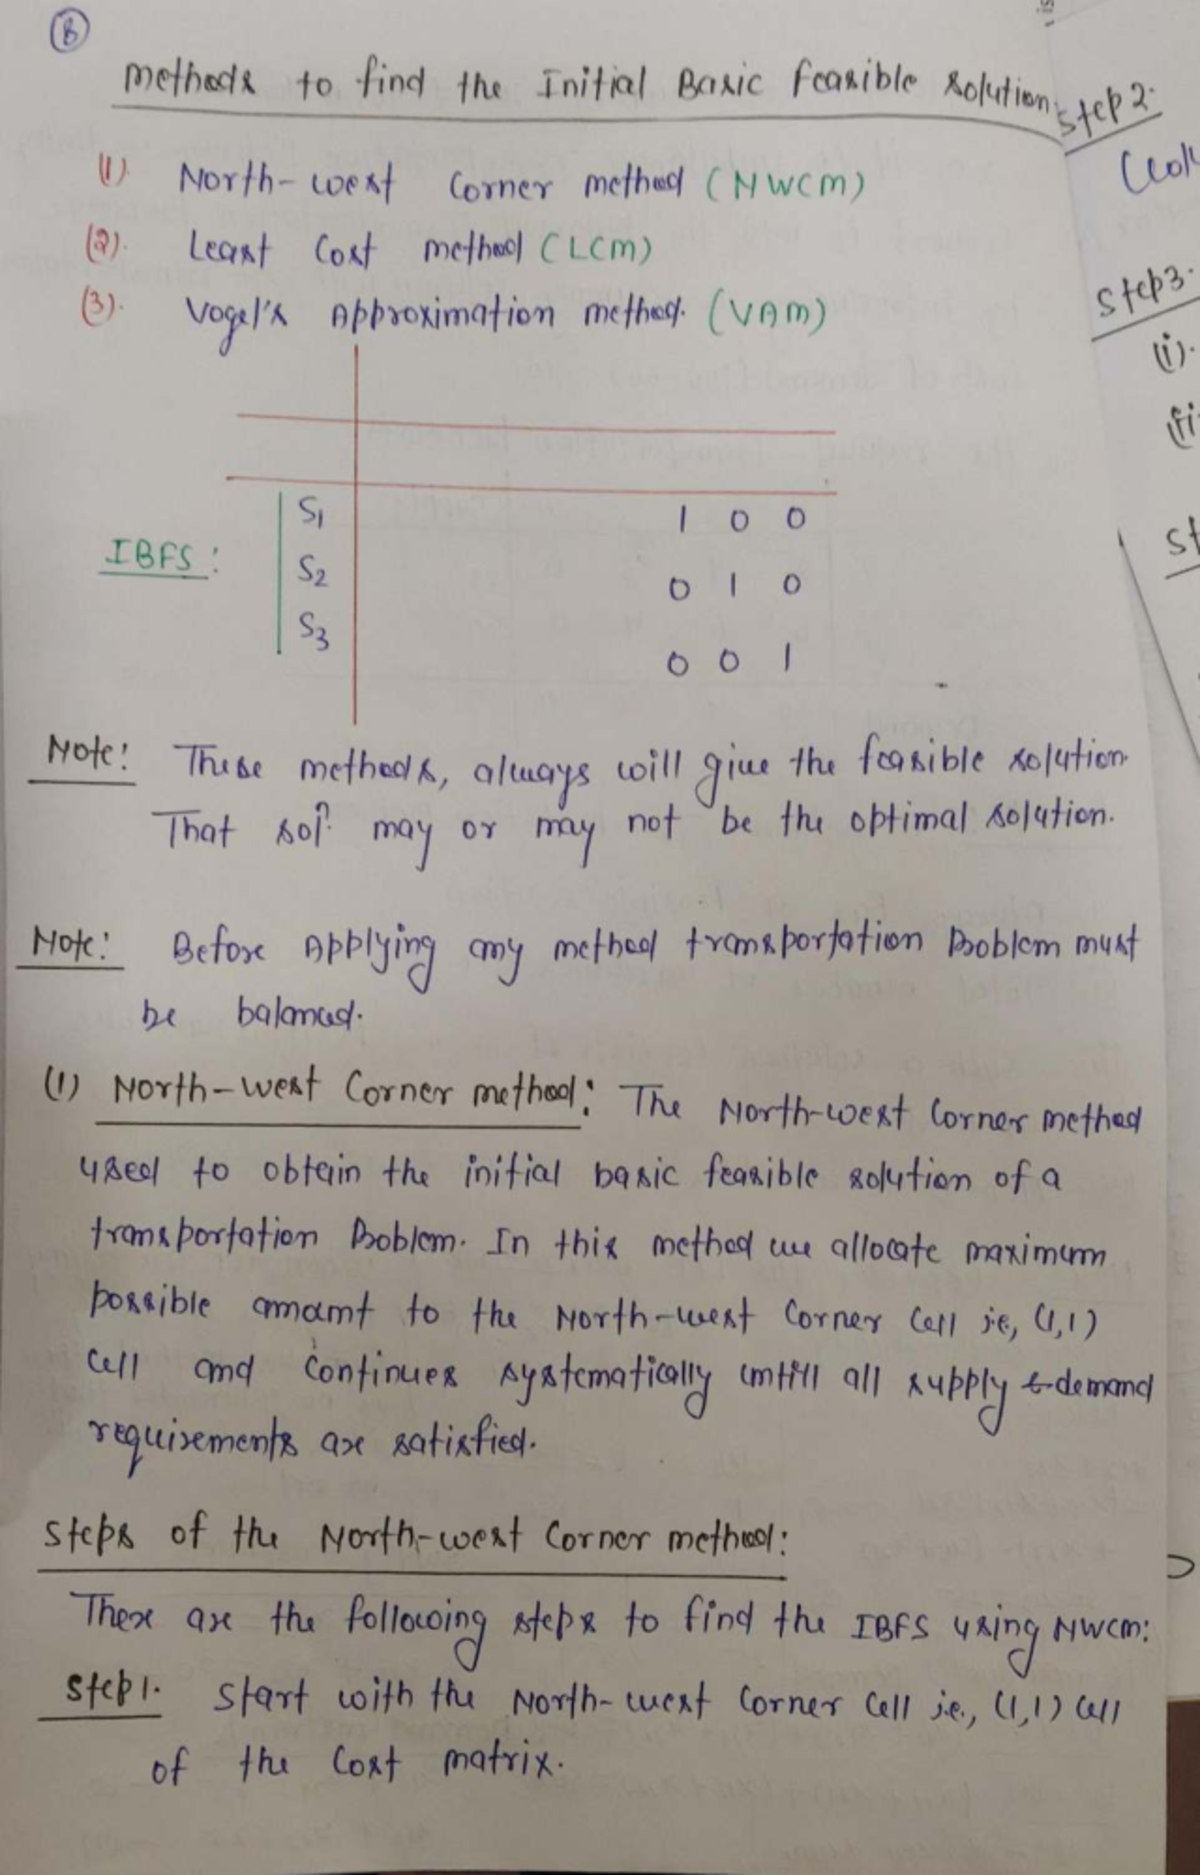 (8)
Methods to find the Initial Basic feasible solution:
(1). North-west Corner method (NWCM)
(2). Least Cost method (LCM)
(3). Vogel's Approximation method. (VAM)
S1 1 0 0
IBFS:
S2 0 1 0
S3 0 0 1
Note: These methods, always will give the feasible solution.
That sol? may or may not be the optimal solution.
Note: Before Applying any method transportation Problem must
be balanced.
(1) North-west Corner method: The North-west Corner method
used to obtain the initial basic feasible solution of a
transportation Problem. In this method we allocate maximum
possible amount to the North-west Corner Cell ie, (1,1)
Cell and Continues systematically untill all supply & demand
requirements are satisfied.
Steps of the North-west Corner method:
There are the following steps to find the IBFS using NWCM:
Step1. Start with the North-west Corner Cell i.e., (1,1) Cell
of the Cost matrix.
Step2.
Step3.
(i).